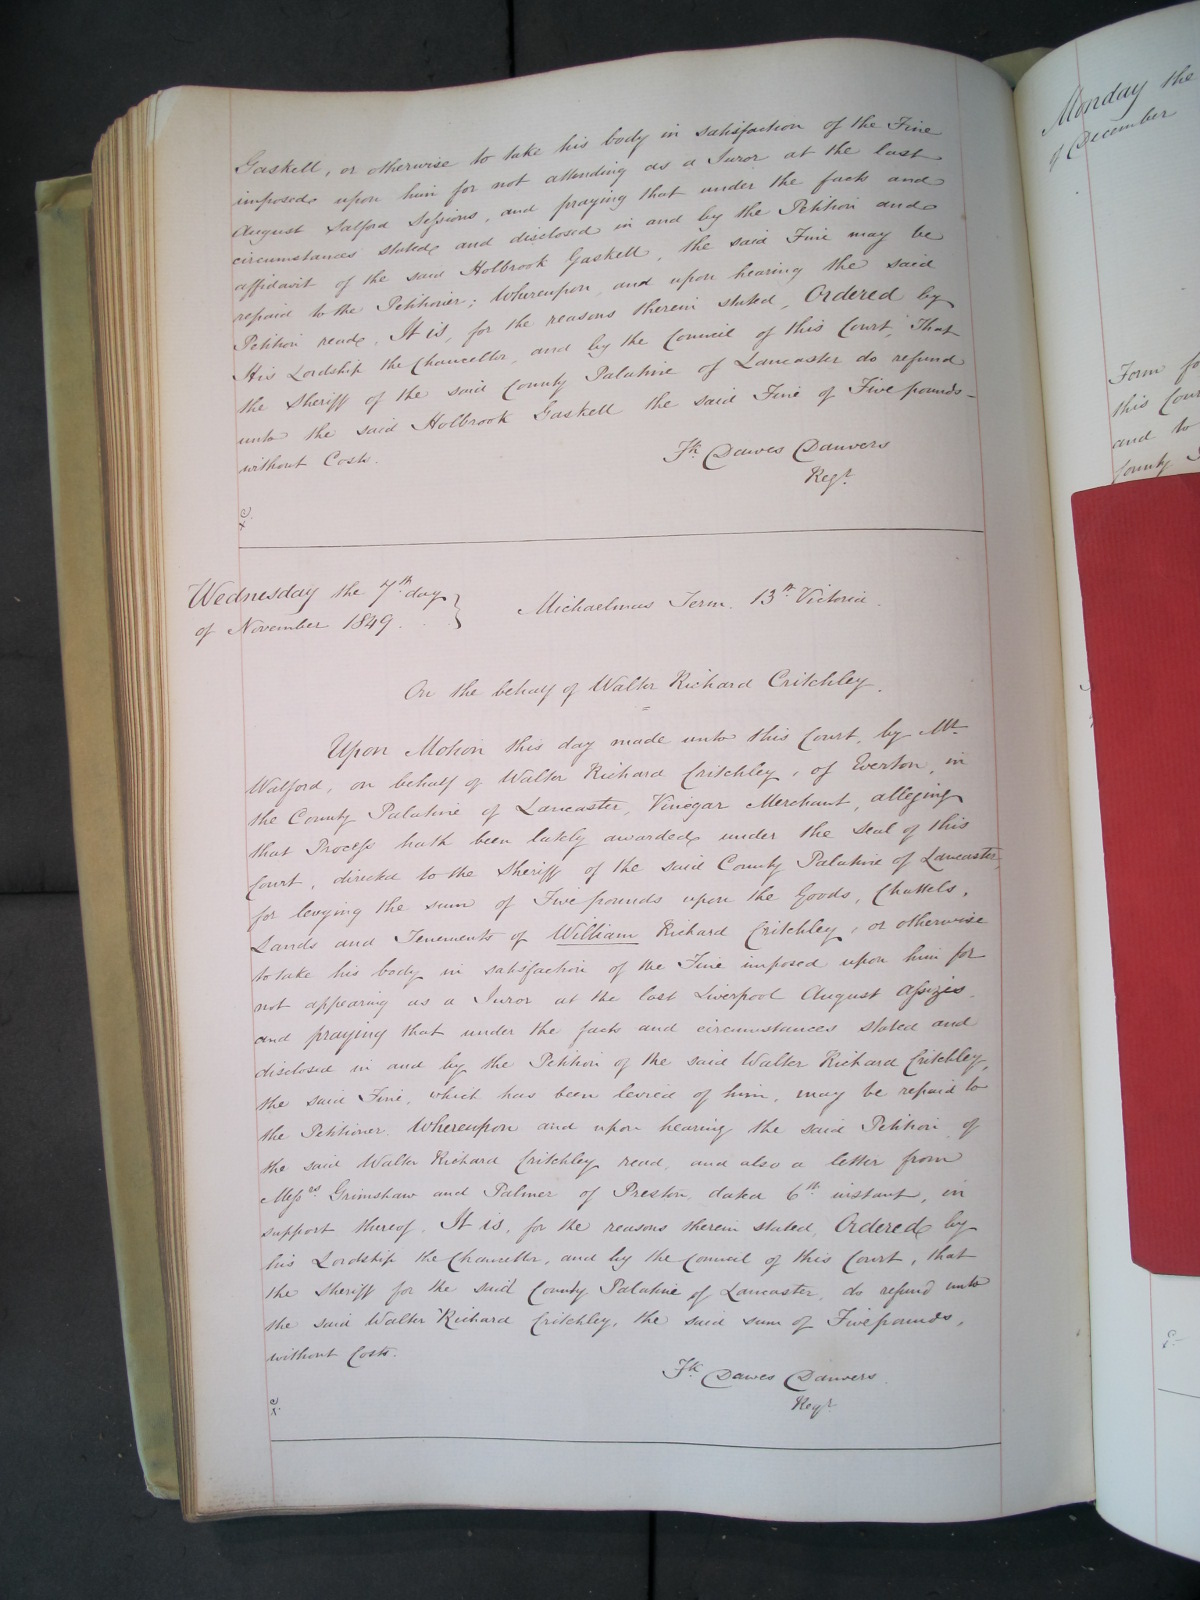 Gaskell, or otherwise to take his body in satisfaction of the Fine
imposed upon him for not attending as a Juror at the last
August Salford Sessions, and praying that under the facts and
circumstances stated and disclosed in and by the Petition and
affidavit of the said Holbrook Gaskell, the said Fine may be
repaid to the Petitioner; Whereupon, and upon hearing the said
Petition read, It is, for the reasons therein stated, Ordered by
His Lordship the Chancellor, and by the Council of this Court, That
the Sheriff of the said County Palatine of Lancaster do refund
unto the said Holbrook Gaskell the said Fine of Five pounds
without Costs.
Fk. Dawes Danvers
Regr.
Wednesday the 7th day
of November 1849.
Michaelmas Term. 13th Victoria.
On the behalf of Walter Richard Critchley.
Upon Motion this day made unto this Court, by Mr.
Walford, on behalf of Walter Richard Critchley, of Everton, in
the County Palatine of Lancaster, Vinegar Merchant, alleging
that Process hath been lately awarded under the Seal of this
Court, directed to the Sheriff of the said County Palatine of Lancaster,
for levying the sum of Five pounds upon the Goods, Chattels,
Lands and Tenements of William Richard Critchley, or otherwise
to take his body in satisfaction of the Fine imposed upon him for
not appearing as a Juror at the last Liverpool August Assizes,
and praying that under the facts and circumstances stated and
disclosed in and by the Petition of the said Walter Richard Critchley,
the said Fine, which has been levied of him, may be repaid to
the Petitioner. Whereupon and upon hearing the said Petition of
the said Walter Richard Critchley read, and also a letter from
Messrs. Grimshaw and Palmer of Preston, dated 6th instant, in
support thereof. It is, for the reasons therein stated, Ordered by
his Lordship the Chancellor, and by the Council of this Court, that
the Sheriff for the said County Palatine of Lancaster, do refund unto
the said Walter Richard Critchley, the said sum of Five pounds,
without Costs.
Fk. Dawes Danvers
Regr.
Monday the
of December
Form fo
this Cour
and to
County